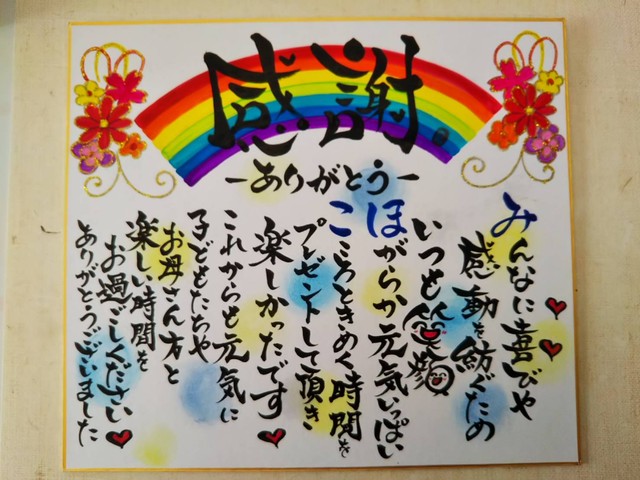 感謝
ーありがとうー
みんなに喜びや
感動を紡ぐため
いつも笑顔
ほがらか元気いっぱい
こころときめく時間を
プレゼントして頂き
楽しかったです
これからも元気に
子どもたちや
お母さん方と
楽しい時間を
お過ごしください
ありがとうございました